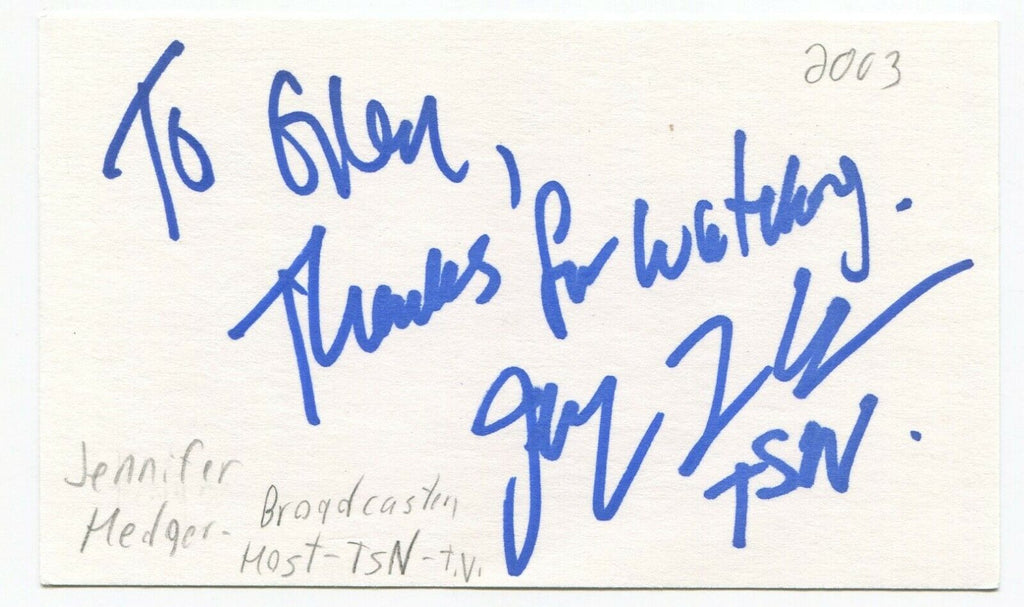 2003
To Glen,
Thanks for watching.
TSN.
Jennifer
Hedger-
Broadcaster,
Host-TSN-T.V.